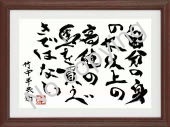 自分の身
の丈以上の
高値の
馬を買うべ
きではない
竹中半兵衛